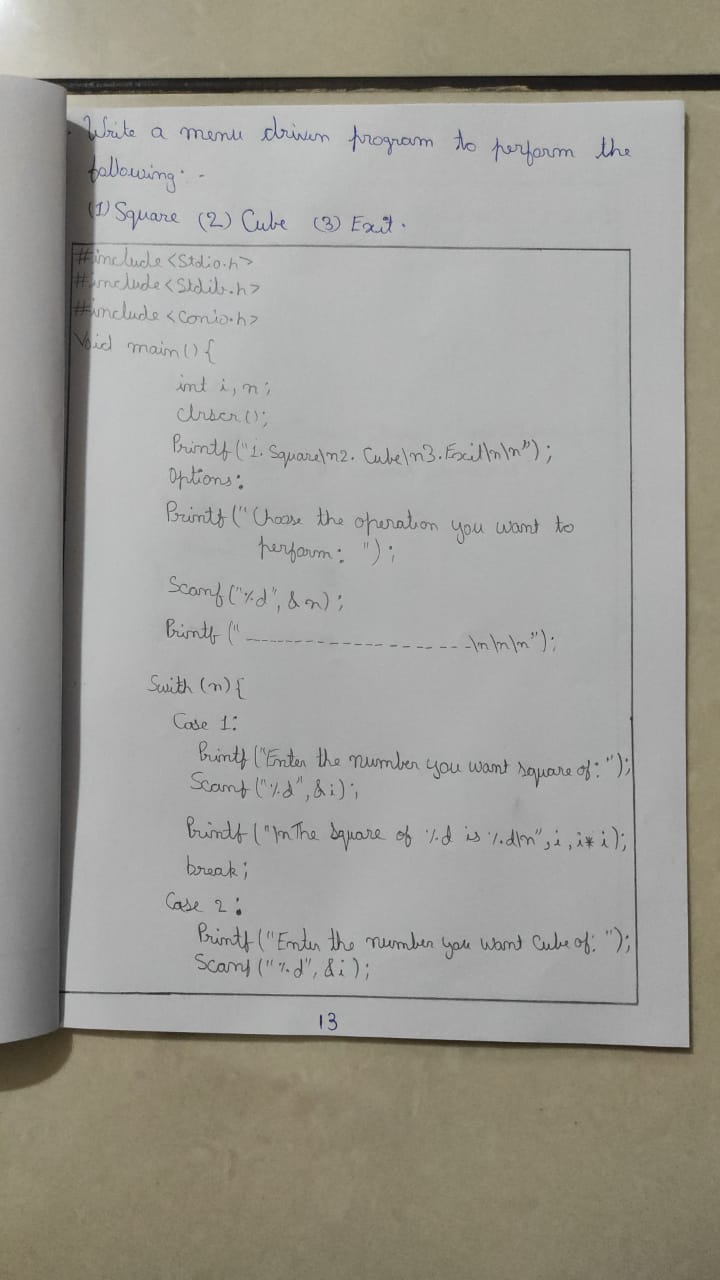 Write a menu driven program to perform the
following: -
(1) Square (2) Cube (3) Exit.
#include <Stdio.h>
#include <Stdlib.h>
#include <Conio.h>
Void main() {
int i, n;
clrscr();
Printf ("1. Square\n2. Cube\n3. Exit\n\n");
Options:
Printf ("Choose the operation you want to
perform: ");
Scanf ("%d", &n);
Printf ("--------------------\n\n\n");
Swith (n) {
Case 1:
Printf ("Enter the number you want square of: ");
Scanf ("%d", &i);
Printf ("\nThe Square of %d is %d\n", i, i*i);
break;
Case 2:
Printf ("Enter the number you want Cube of: ");
Scanf ("%d", &i);
13